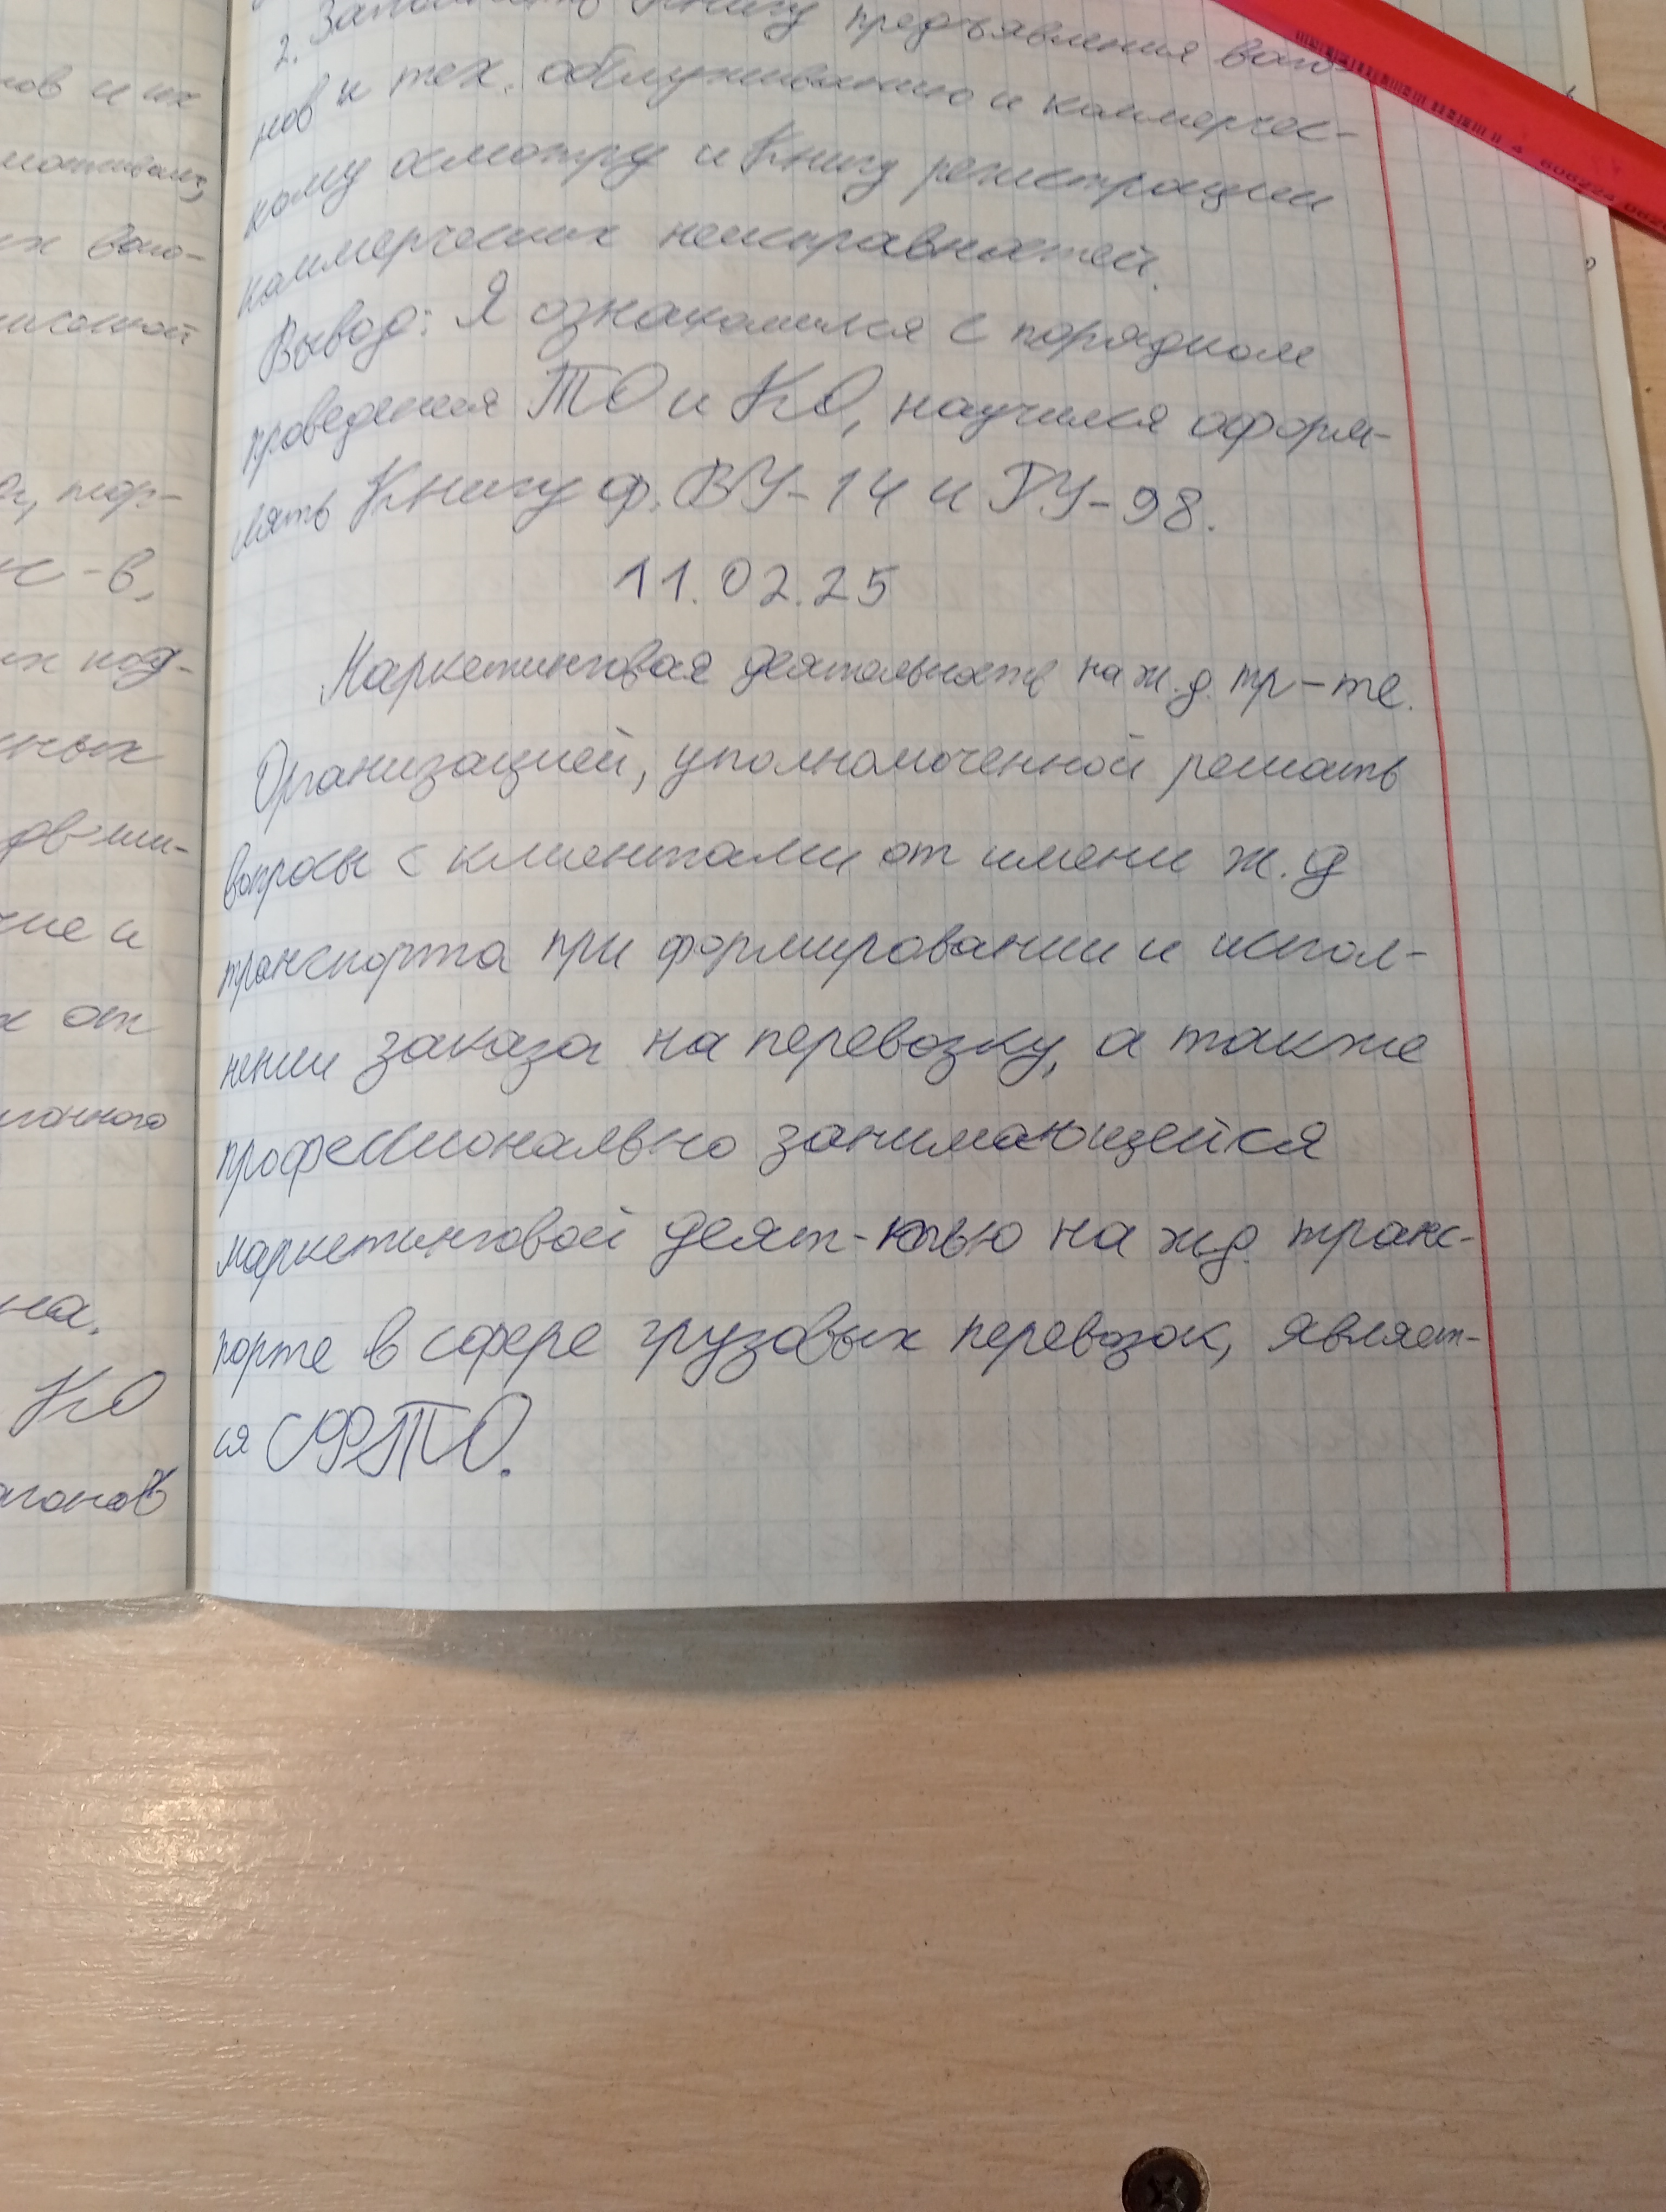 нов и их
их ваго-
, тор-
к-в,
их под-
ных
ние и
х от
на.
КО
2. Заполнить Книгу предъявления ваго-
нов к тех. обслуживанию и коммерчес-
кому осмотру и Книгу регистрации
коммерческих неисправностей.
Вывод: Я ознакомился с порядком
проведения ТО и КО, научился оформ-
лять Книгу ф. ВУ-14 и ГУ-98.
11.02.25
Маркетинговая деятельность на ж.д. тр-те.
Организацией, уполномоченной решать
вопросы с клиентами от имени ж.д
транспорта при формировании и испол-
нении заказа на перевозку, а также
профессионально занимающейся
маркетинговой деят-ностью на ж.д. транс-
порте в сфере грузовых перевозок, являет-
ся СФТО.